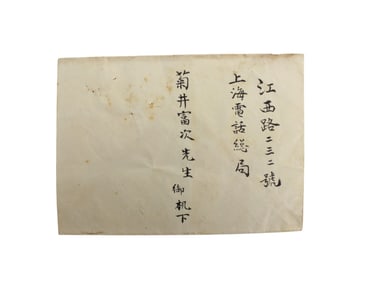 江西路二三二號
上海電話總局
菊井富次先生御机下